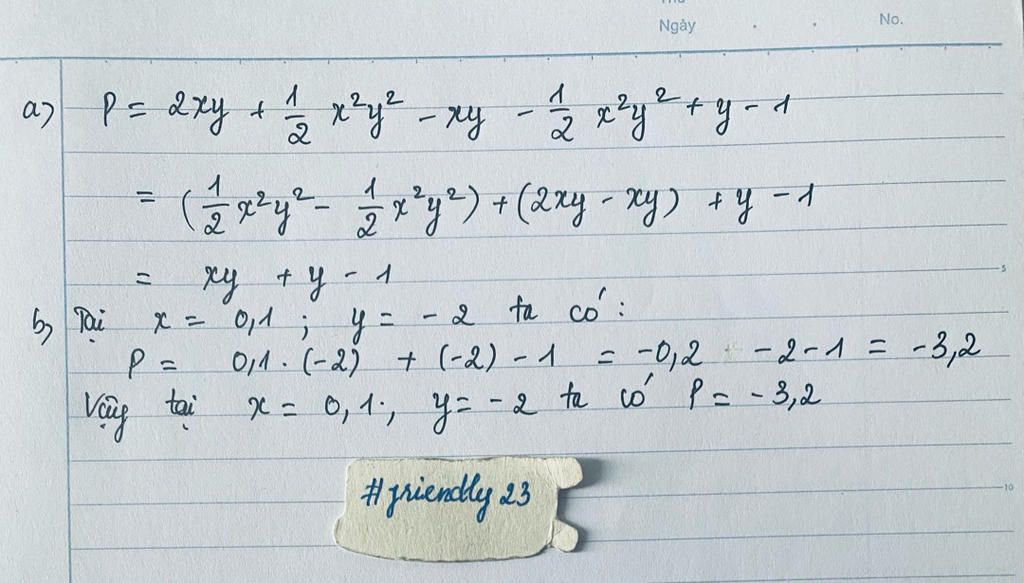 Thứ
Ngày . . No.
a) P = 2xy + 1/2 x²y² - xy - 1/2 x²y² + y - 1
= (1/2 x²y² - 1/2 x²y²) + (2xy - xy) + y - 1
= xy + y - 1
5
b) Tại x = 0,1 ; y = - 2 ta có :
P = 0,1 . (-2) + (-2) - 1 = -0,2 - 2 - 1 = -3,2
Vậy tại x = 0,1 ; y = - 2 ta có P = - 3,2
#friendly 23
10